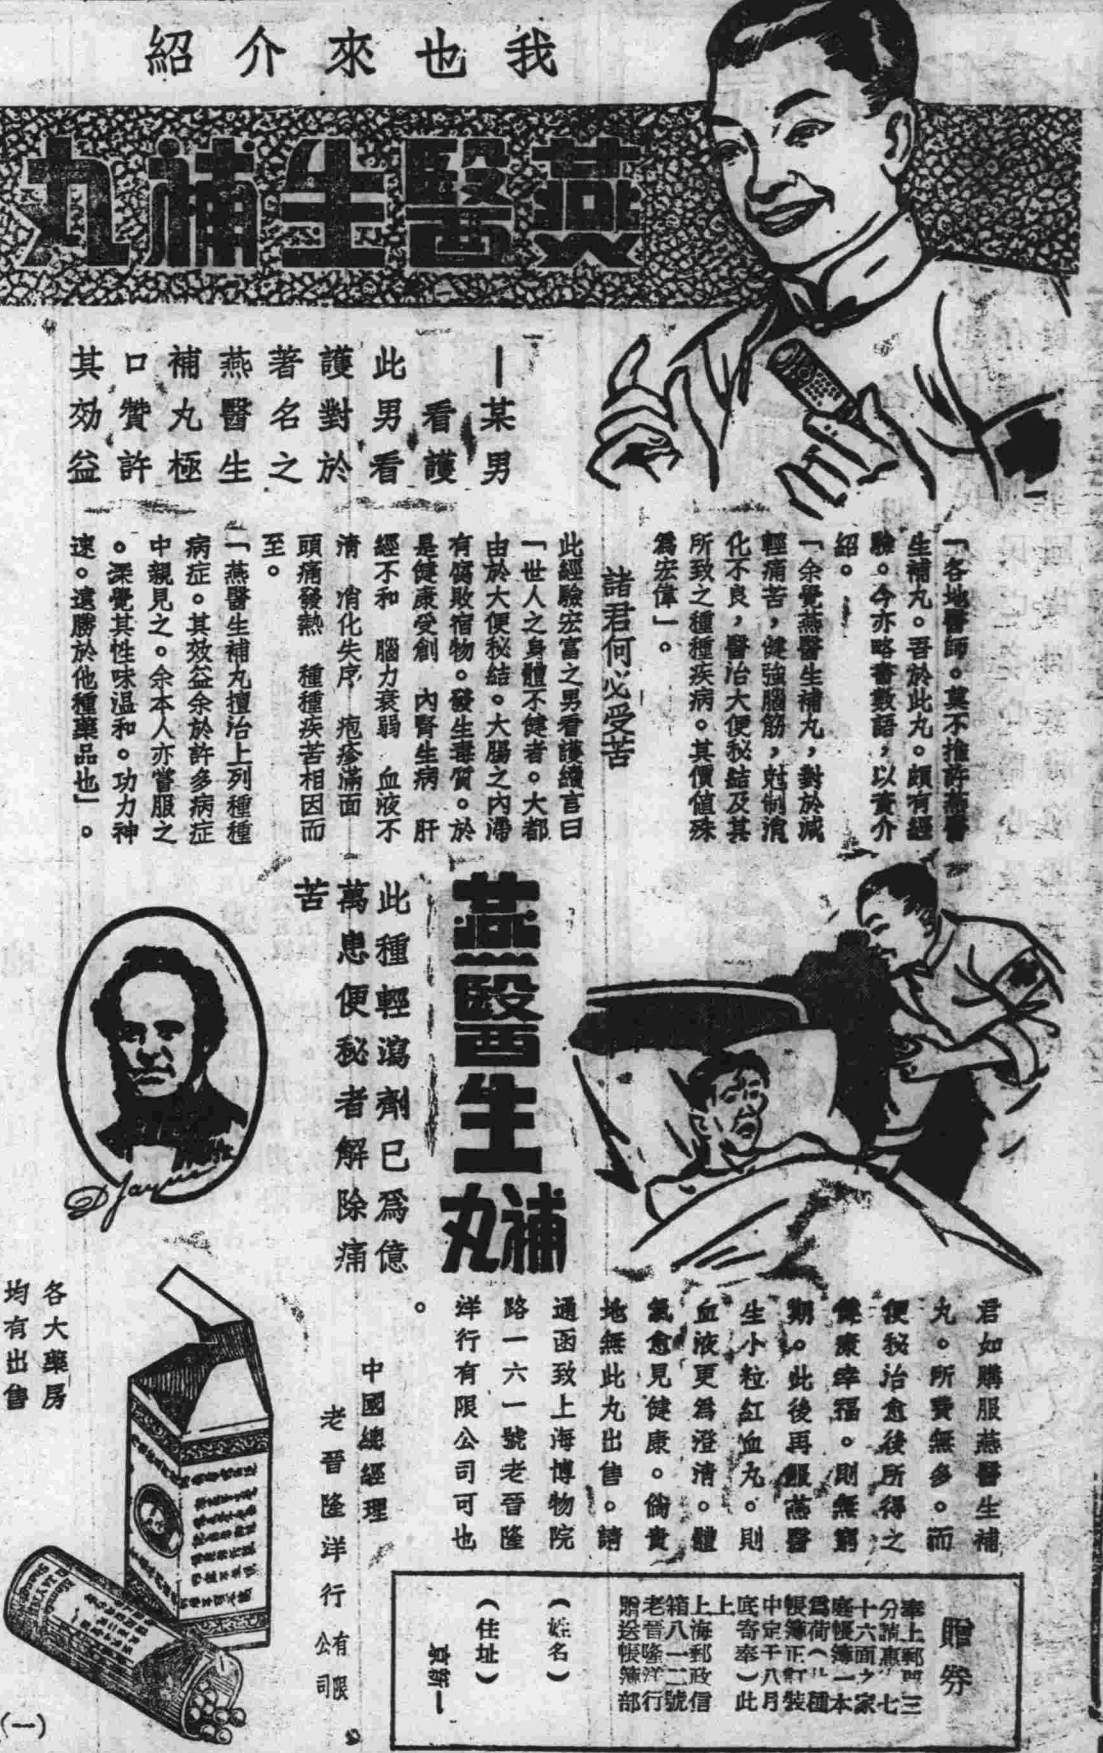 我也來介紹
燕醫生補丸
—某男
看護
此男看
護對於
著名之
燕醫生
補丸極
口贊許
其効益
「各地醫師。莫不推許燕醫
生補丸。吾於此丸。頗有經
驗。今亦略書數語，以資介
紹。
「余覺燕醫生補丸，對於減
輕痛苦，健強腦筋，尅制消
化不良，醫治大便秘結及其
所致之種種疾病。其價值殊
爲宏偉」。
諸君何必受苦
此經驗宏富之男看護續言曰
「世人之身體不健者。大都
由於大便秘結。大腸之內滯
有腐敗宿物。發生毒質。於
是健康受創　內腎生病　肝
經不和　腦力衰弱　血液不
清　消化失序　疱疹滿面
頭痛發熱　種種疾苦相因而
至。
「燕醫生補丸擅治上列種種
病症。其效益余於許多病症
中親見之。余本人亦嘗服之
。深覺其性味温和。功力神
速。遠勝於他種藥品也」。
燕醫生
補丸
此種輕瀉劑已爲億
萬患便秘者解除痛
苦
D Jayne
君如購服燕醫生補
丸。所費無多。而
便秘治愈後所得之
健康幸福。則無窮
期。此後再服燕醫
生小粒紅血丸。則
血液更爲澄清。體
氣愈見健康。倘貴
地無此丸出售。請
通函致上海博物院
路一六一號老晉隆
洋行有限公司可也
。
中國總經理
老晉隆洋行有限公司
各大藥房
均有出售
贈券
奉上郵票三
分請惠七
十六面之家
庭帳簿一本
爲荷（此種
帳簿正訂裝
中定于八月
底寄奉）此
上
上海郵政信
箱八一二號
老晉隆洋行
贈送帳簿部
（姓名）
（住址）
京新一
（一）